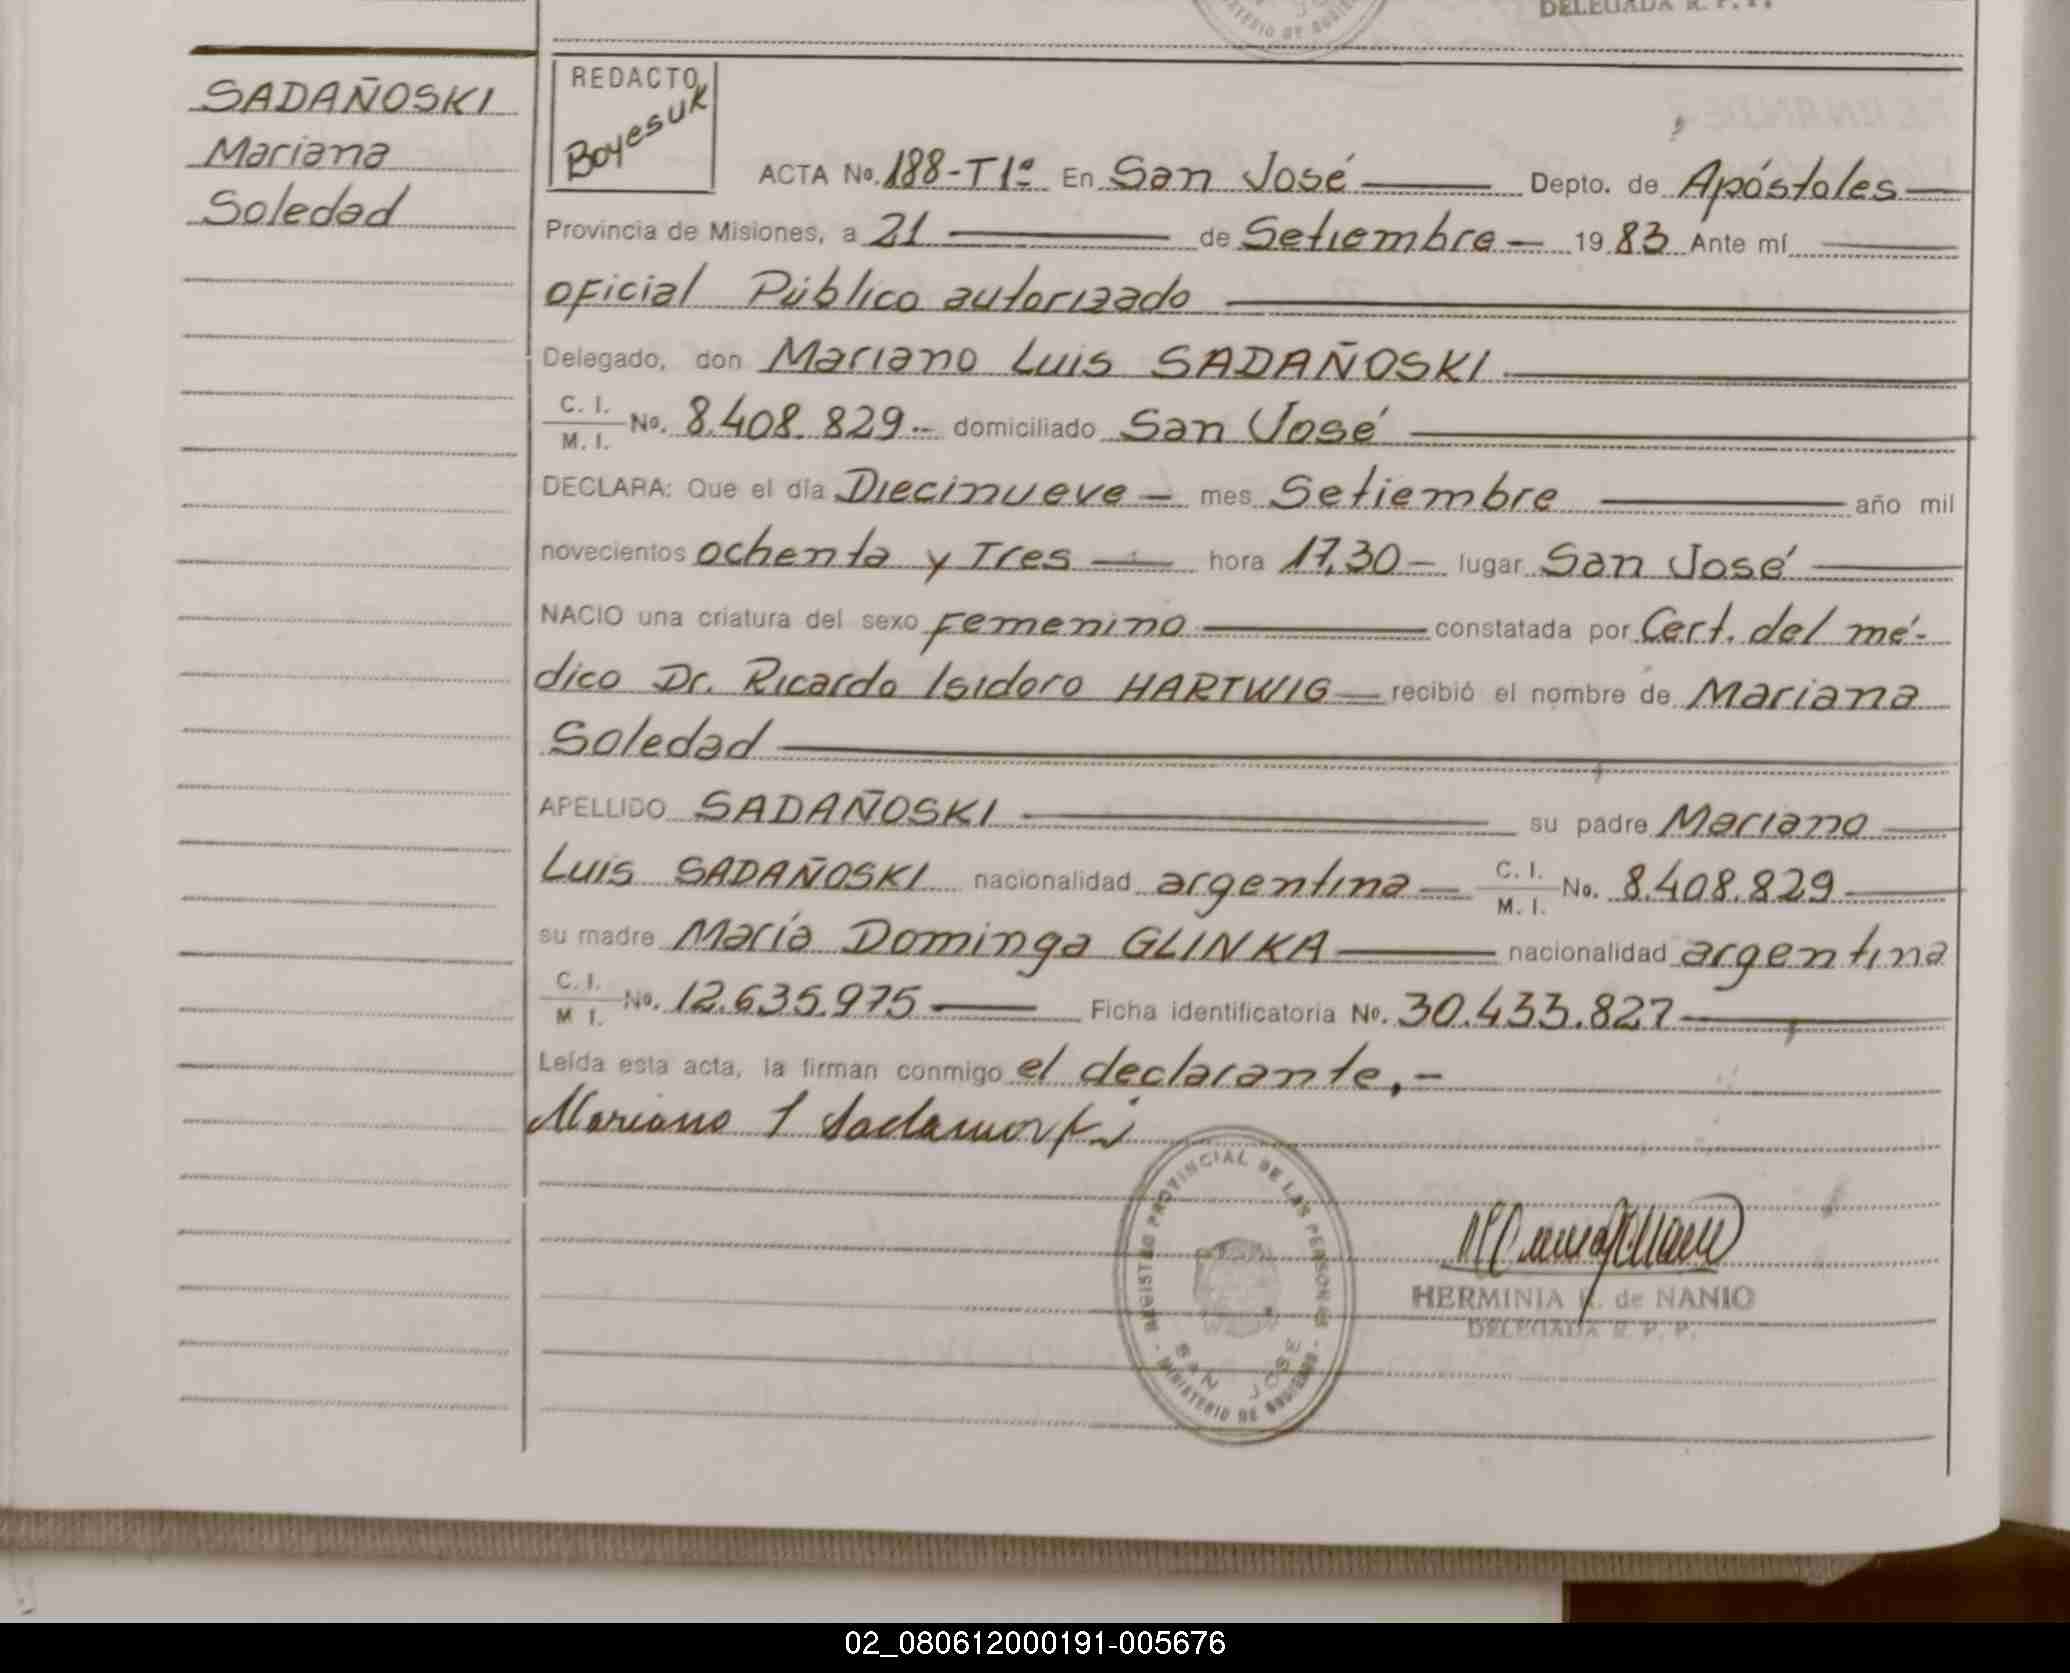 DELEGADA R. P. P.
MINISTERIO DE GOBIERNO
SADAÑOSKI
Mariana
Soledad
REDACTO
Boyesuk
ACTA No. 188-T1º En San José Depto. de Apóstoles
Provincia de Misiones, a 21 de Setiembre 1983 Ante mí
oficial Público autorizado
Delegado, don Mariano Luis SADAÑOSKI
C. I.
M. I. No. 8.408.829 domiciliado San José
DECLARA: Que el día Diecinueve mes Setiembre año mil
novecientos ochenta y Tres hora 17,30 lugar San José
NACIO una criatura del sexo Femenino constatada por Cert. del mé-
dico Dr. Ricardo Isidoro HARTWIG recibió el nombre de Mariana
Soledad
APELLIDO SADAÑOSKI su padre Mariano
Luis SADAÑOSKI nacionalidad argentina C. I. M. I. No. 8.408.829
su madre María Dominga GLINKA nacionalidad argentina
C. I.
M I. No. 12.635.975 Ficha identificatoria No. 30.433.827
Leída esta acta, la firman conmigo el declarante.-
Mariano L
REGISTRO PROVINCIAL DE LAS PERSONAS
SAN JOSE
- MINISTERIO DE GOBIERNO -
HERMINIA K. de NANIO
DELEGADA R. P. P.
02_080612000191-005676